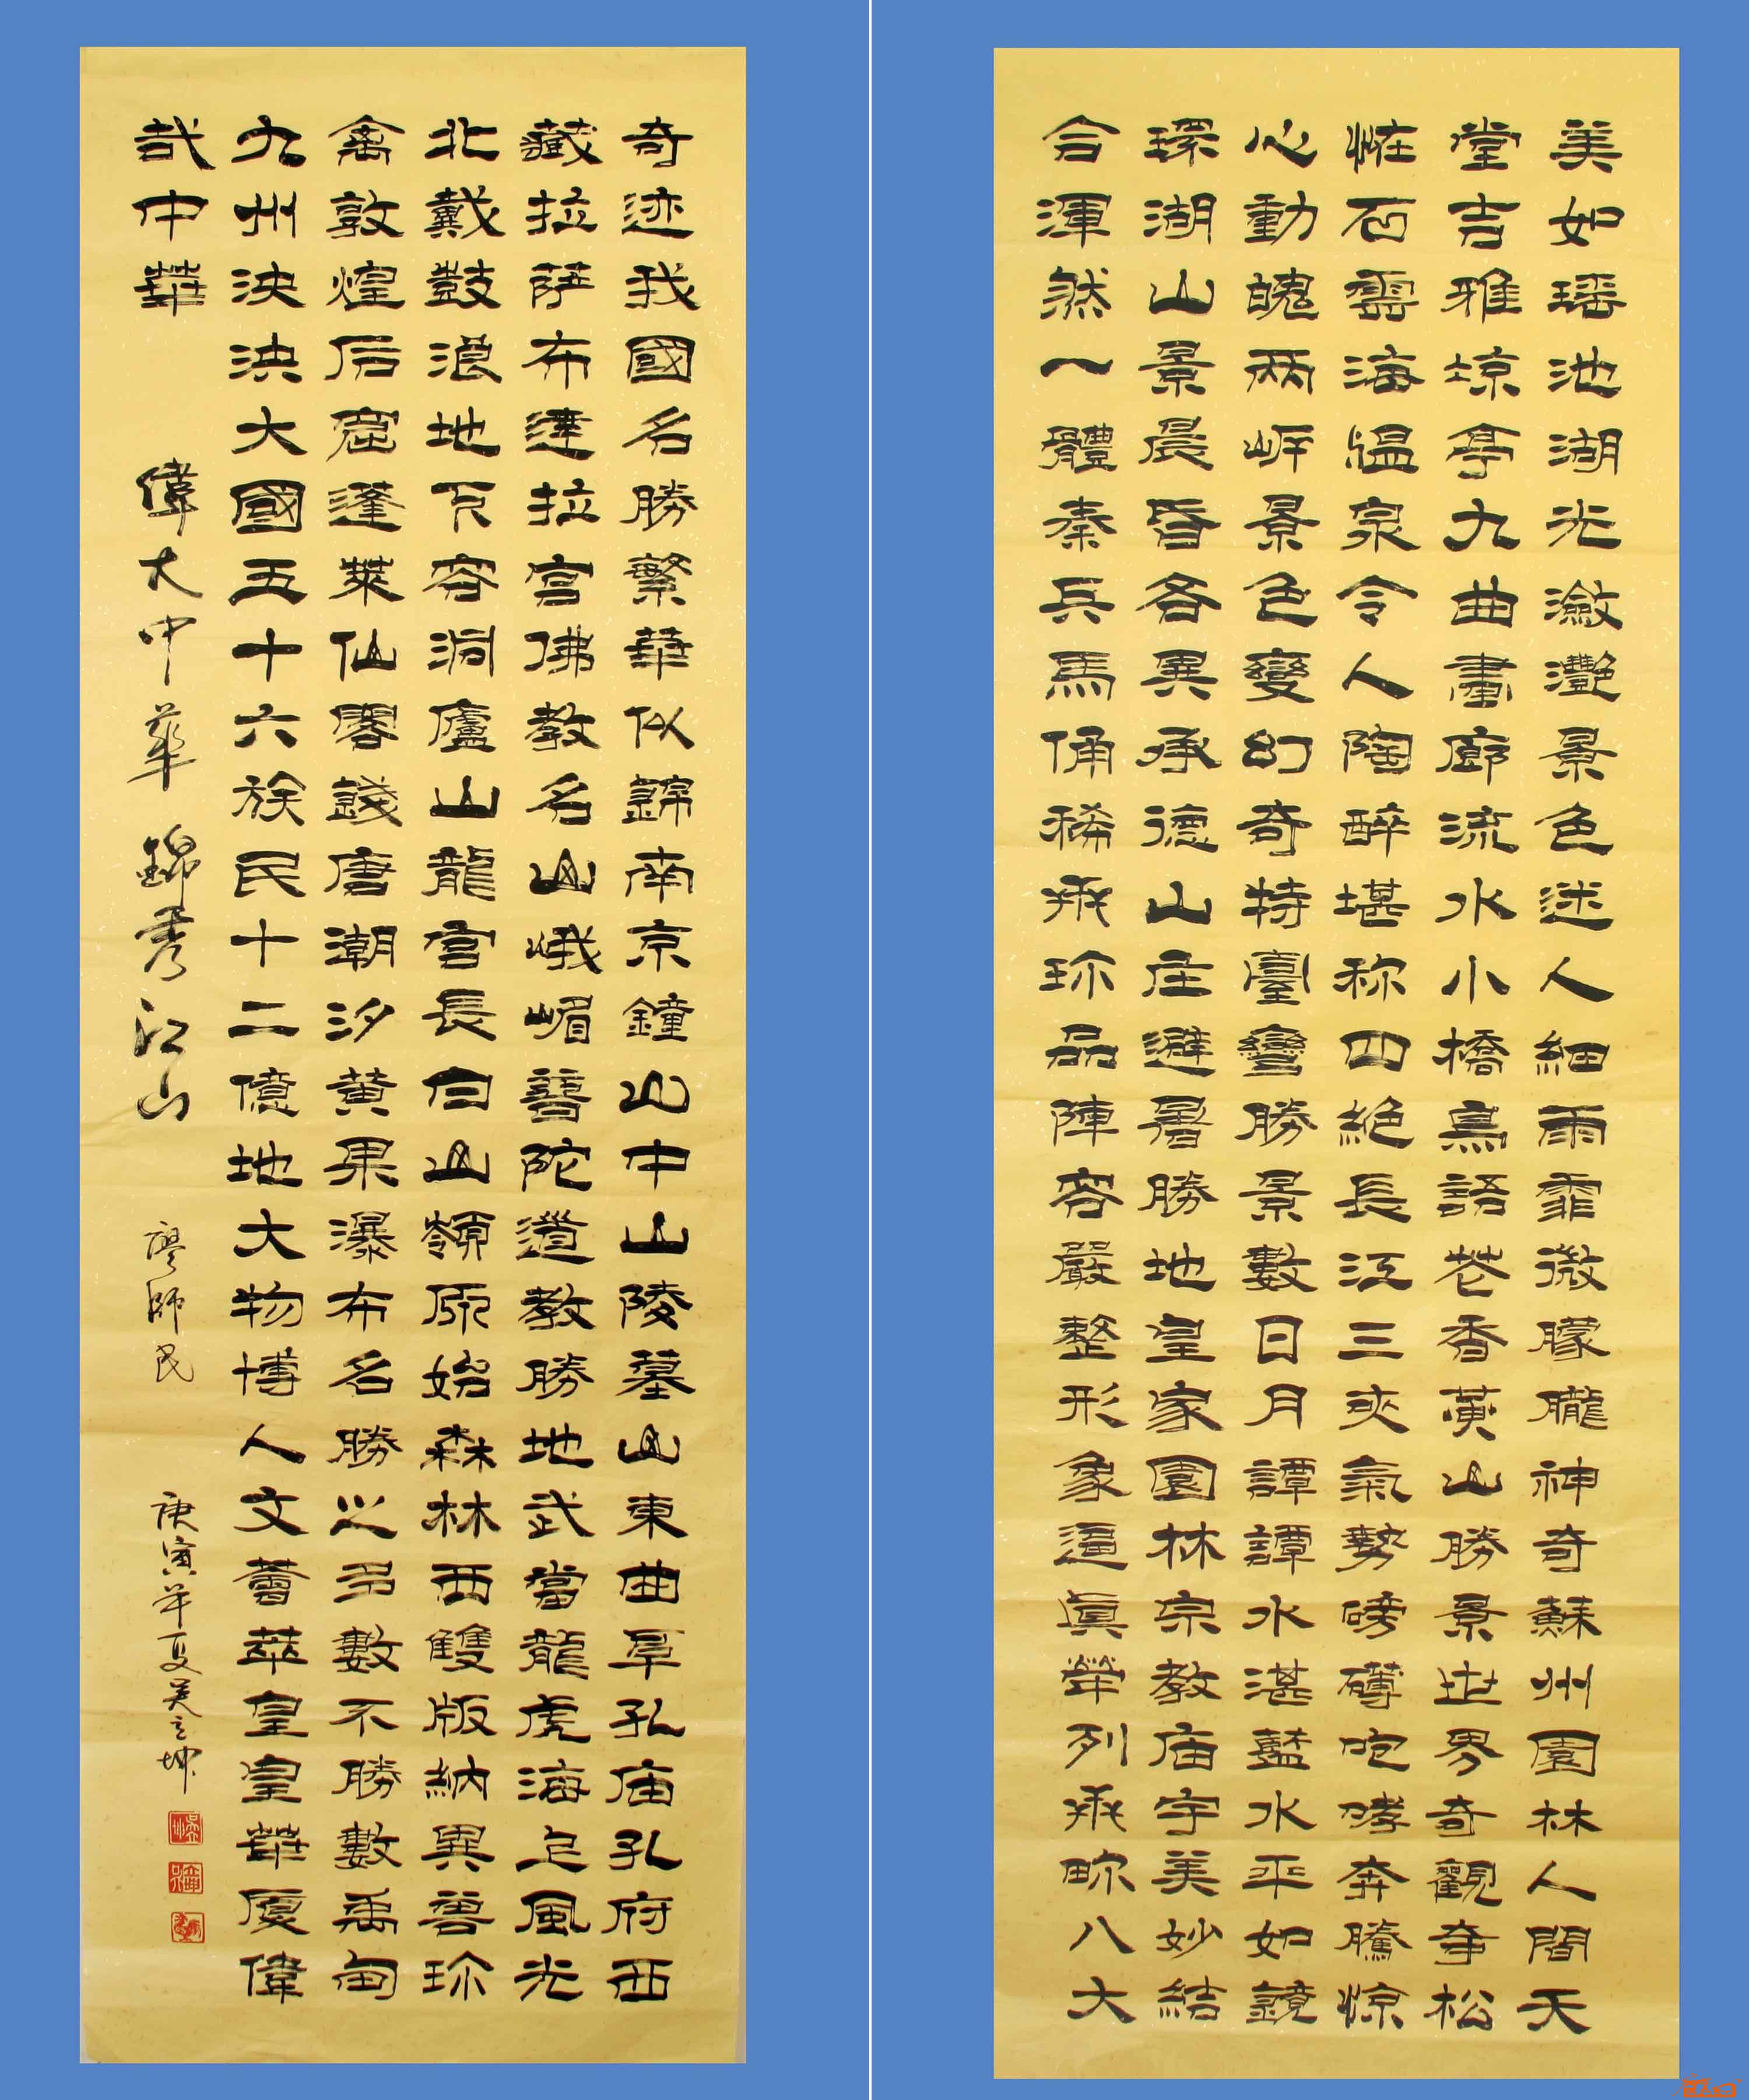 美如瑶池湖光瀲灔景色迷人細雨霏微朦朧神奇蘇州園林人間天
堂古雅凉亭九曲畫廊流水小橋鳥語花香黄山勝景世界奇觀奇松
怪石雲海温泉令人陶醉堪称四绝長江三夾氣勢磅礴咆哮奔騰惊
心動魄兩岍景色變幻奇特臺灣勝景數日月譚譚水湛藍水平如鏡
環湖山景晨昏各異承德山庄避暑勝地皇家園林宗教庙宇美妙結
合渾然一體秦兵馬俑稀珎珎品陣容嚴整形象逼真举列珎畩八大
奇迹我國名勝繁華似錦南京鐘山中山陵墓山東曲阜孔庙孔府西
藏拉萨布達拉宫佛教名山峨嵋普陀道教勝地武當龍虎海上風光
北戴鼓浪地下容洞廬山龍宫長白山領原始森林西雙版納異兽珎
禽敦煌石窟蓬萊仙閣錢唐潮汐黄果瀑布名勝之多數不勝數禹甸
九州泱泱大國五十六族民十二億地大物博人文薈萃皇皇華厦偉
哉中華
偉大中華錦秀江山
廖師民
庚寅年夏吴立坤